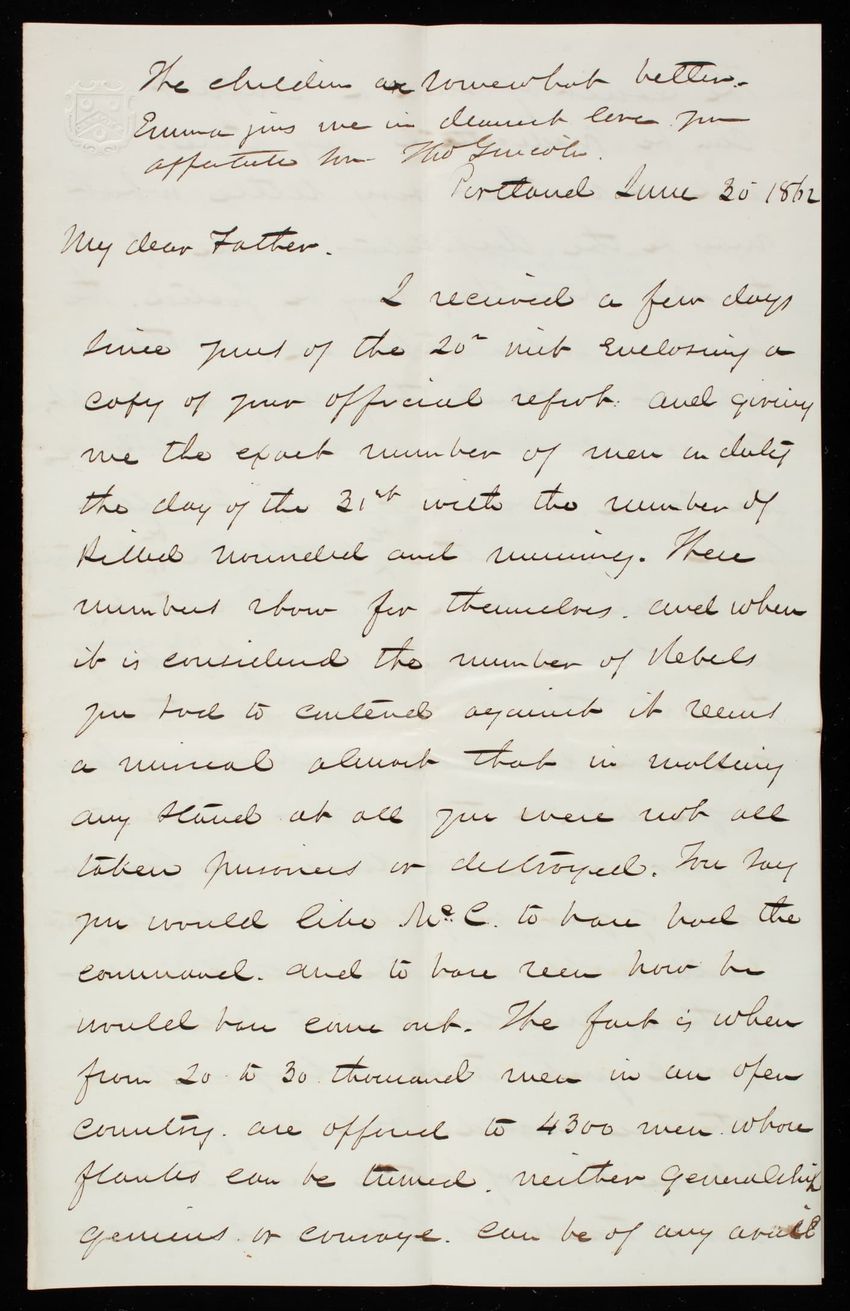 The children are somewhat better.
Emma joins me in dearest love your
affectnte son Tho L Casey
Portland June 30 1862
My dear Father.
I received a few days
since yours of the 20th inst enclosing a
copy of your official report. and giving
me the exact number of men on duty
the day of the 31st with the number of
killed wounded and missing. These
numbers show for themselves. and when
it is considered the number of Rebels
you had to contend against it seems
a miracal almost that in making
any stand at all you were not all
taken prisoners or destroyed. You say
you would like McC. to have had the
command. and to have seen how he
would have come out. The fact is when
from 20 to 30 thousand men in an open
country. are offered to 4300 men whose
flanks can be turned. neither generalship
genius or courage. can be of any avail